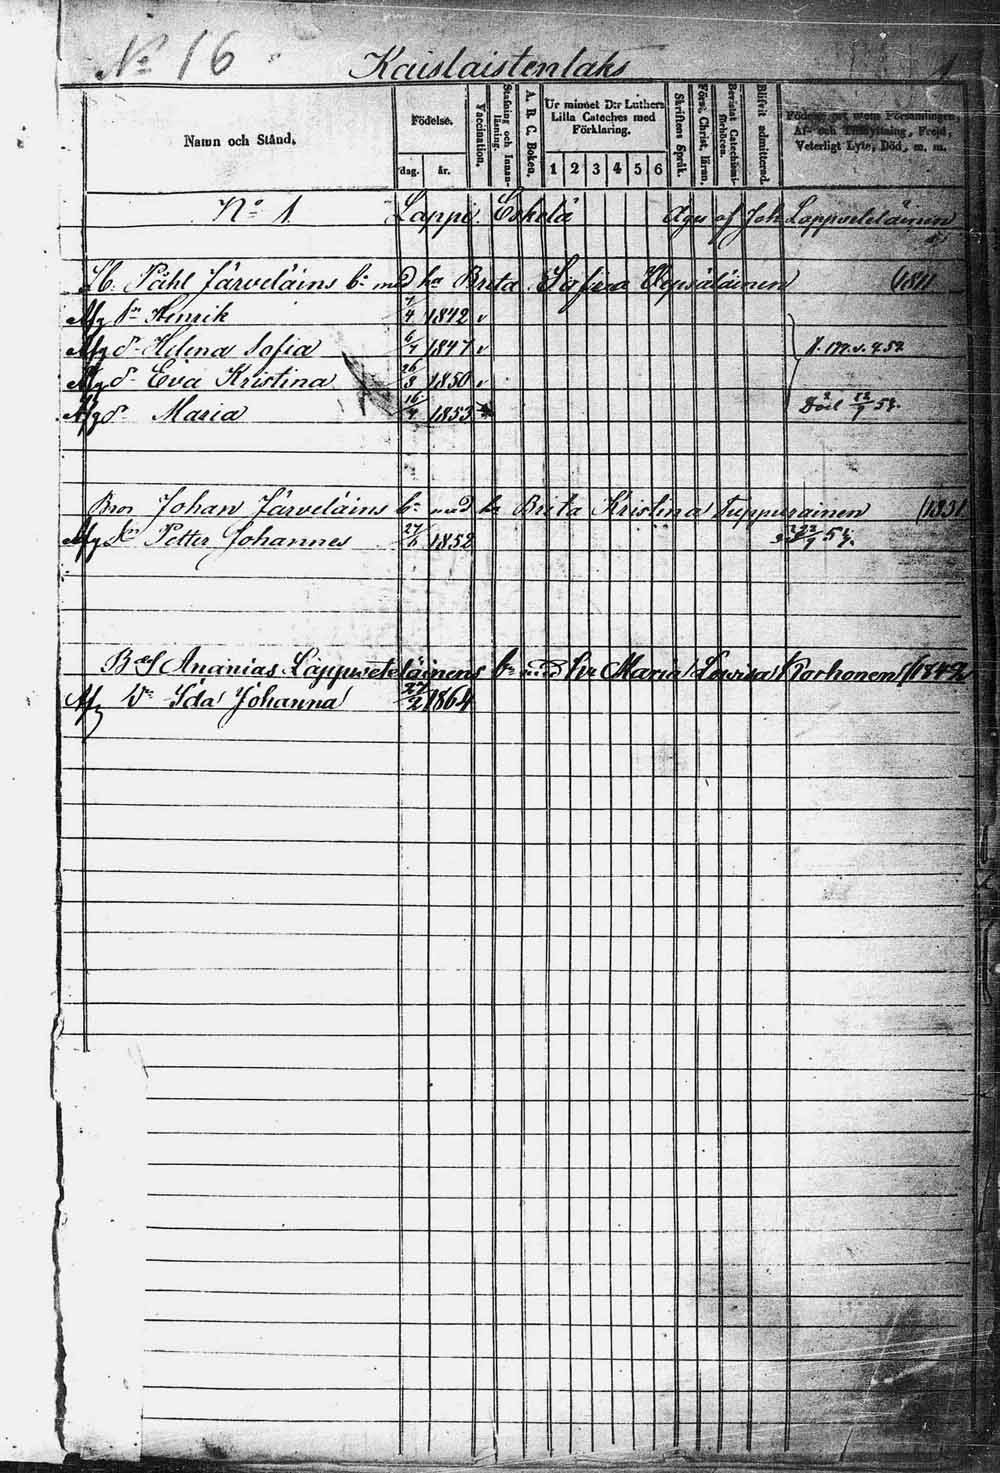 No 16 Kaislaistenlaks 1
Namn och Stånd.
Födelse.
dag. år.
Vaccination.
Stafning och Innanläsning.
A. B. C. Boken.
Ur minnet D:r Luthers Lilla Cateches med Förklaring.
1 2 3 4 5 6
Skriftens Språk.
Först. Christ. läran.
Bevistat Catechismiförhören.
Blifvit admitterad.
Födelse ort utom Församlingen, Af- och Tillflyttning, Frejd, Veterligt Lyte, Död, m. m.
No 1 Lappi Eskelä Äges af Joh Lappveteläinen
Påhl Järveläins bn med hu Brita Sofia Vepsäläinen (1811
Afg sn Henrik 4 1842 v
Afg dr Helena Sofia 6/7 1847 v
Afg dr Eva Kristina 26/3 1850 v
Afg dr Maria 16 1853 Död 22/9 54.
Bror Johan Järveläins bn med hu Brita Kristina Tuppurainen (1831
Afg Sn Petter Johannes 27 1852
Ananias Lappveteläinens bn med hu Maria Lowisa Korhonen (1842
Af Dr Ida Johanna 27/2 1864